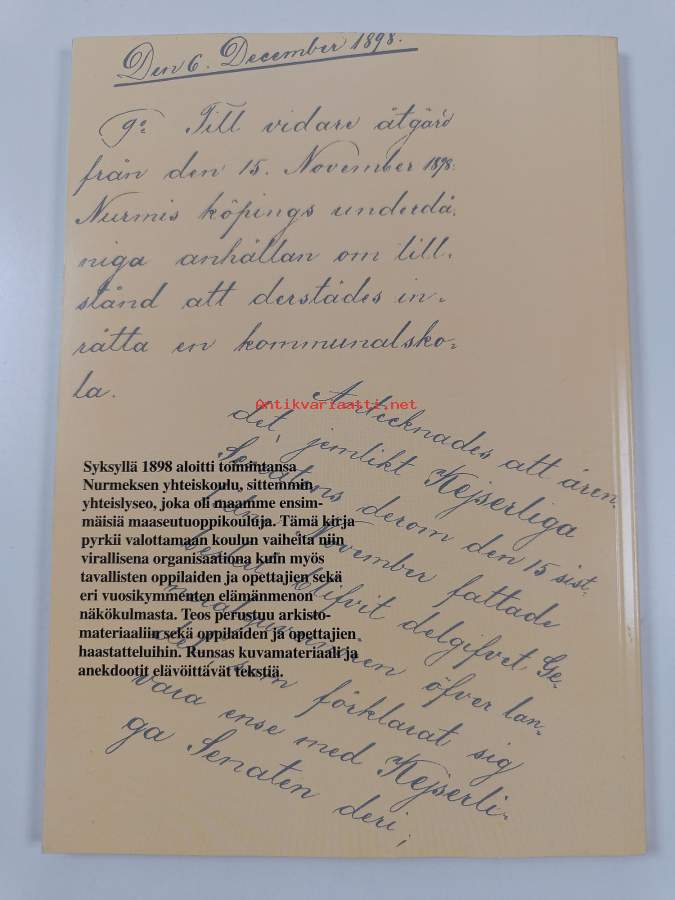 Den 6. December 1898.
9o: Till vidare åtgärd
från den 15. November 1898.
Nurmis köpings underdå-
niga anhållan om till-
stånd att derstädes in-
rätta en kommunalsko-
la.
Antikvariaatti.net
Antecknades att ären-
det jemlikt Kejserliga
Senatens derom den 15 sist-
November fattade
beslut blifvit delgifvet Ge-
öfver lan-
som förklarat sig
vara ense med Kejserli-
ga Senaten deri;
Syksyllä 1898 aloitti toimintansa
Nurmeksen yhteiskoulu, sittemmin
yhteislyseo, joka oli maamme ensim-
mäisiä maaseutuoppikouluja. Tämä kirja
pyrkii valottamaan koulun vaiheita niin
virallisena organisaationa kuin myös
tavallisten oppilaiden ja opettajien sekä
eri vuosikymmenten elämänmenon
näkökulmasta. Teos perustuu arkisto-
materiaaliin sekä oppilaiden ja opettajien
haastatteluihin. Runsas kuvamateriaali ja
anekdootit elävöittävät tekstiä.